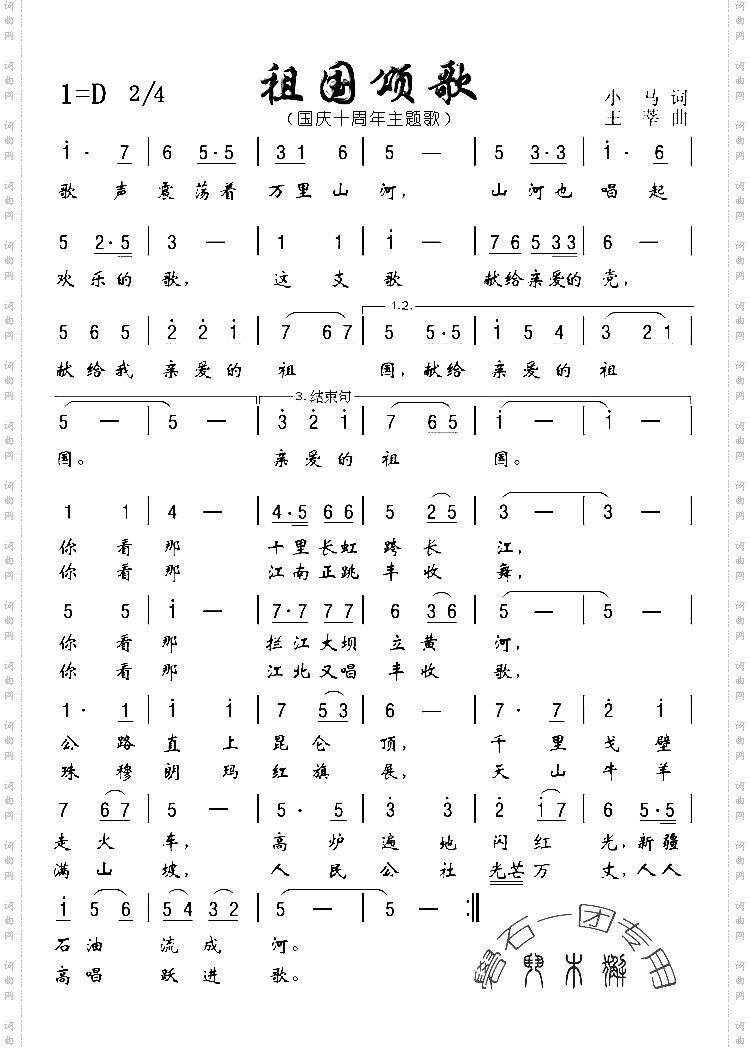 祖国颂歌
1=D 2/4
（国庆十周年主题歌）
小 马 词
王 莘 曲
i · 7 | 6 5·5 | 3 1 6 | 5 — | 5 3·3 | i · 6 |
歌 声 震 荡着 万里山 河， 山 河也 唱 起
5 2·5 | 3 — | 1 1 | i — | 7 6 5 3 3 | 6 — |
欢 乐的 歌， 这 支 歌 献给亲爱的 党，
1.2.
5 6 5 | 2 2 i | 7 6 7 | 5 5·5 | i 5 4 | 3 2 1 |
献给我 亲爱的 祖 国，献给 亲爱的 祖
3. 结束句
5 — | 5 — | 3 2 i | 7 6 5 | i — | i — |
国。 亲爱的 祖 国。
1 1 | 4 — | 4·5 6 6 | 5 2 5 | 3 — | 3 — |
你 看 那 十里长虹 跨长 江，
你 看 那 江南正跳 丰收 舞，
5 5 | i — | 7·7 7 7 | 6 3 6 | 5 — | 5 — |
你 看 那 拦江大坝 立黄 河，
你 看 那 江北又唱 丰收 歌，
1 · 1 | i i | 7 5 3 | 6 — | 7 · 7 | 2 i |
公 路 直 上 昆仑 顶， 千 里 戈 壁
珠 穆 朗 玛 红旗 展， 天 山 牛 羊
7 6 7 | 5 — | 5 · 5 | 3 3 | 2 i 7 | 6 5·5 |
走 火 车， 高 炉 遍 地 闪红 光，新疆
满 山 坡， 人 民 公 社 光芒万 丈，人人
i 5 6 | 5 4 3 2 | 5 — | 5 — :||
石油 流成 河。
高唱 跃进 歌。
石一团专用
词曲网
词曲网
词曲网
词曲网
词曲网
词曲网
词曲网
词曲网
词曲网
词曲网
词曲网
词曲网